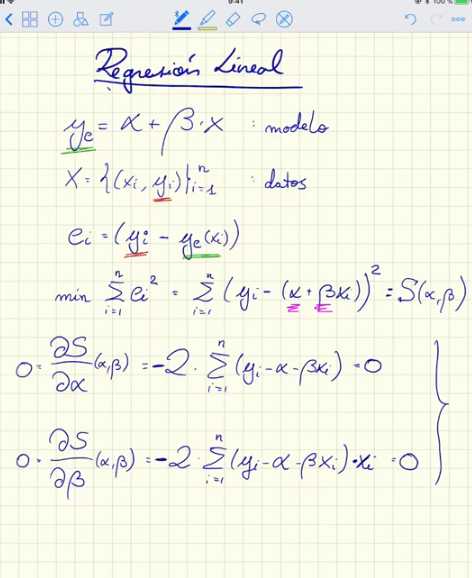 9:41
100 %
Regresión Lineal
y_e = α + β · x : modelo
X = {(x_i, y_i)}_{i=1}^{n} : datos
e_i = (y_i - y_e(x_i))
min ∑_{i=1}^{n} e_i^2 = ∑_{i=1}^{n} (y_i - (α + βx_i))^2 = S(α,β)
0 = ∂S/∂α (α,β) = -2 · ∑_{i=1}^{n} (y_i - α - βx_i) = 0
0 = ∂S/∂β (α,β) = -2 · ∑_{i=1}^{n} (y_i - α - βx_i) · x_i = 0